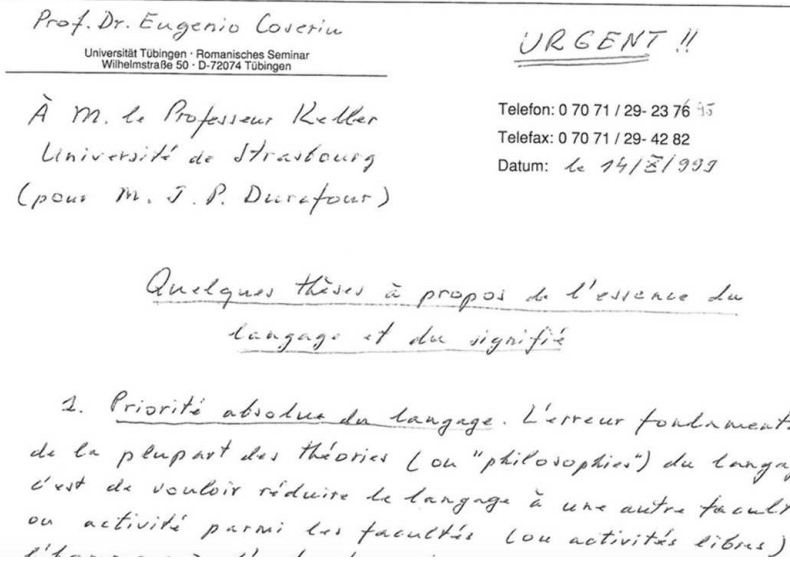 Prof. Dr. Eugenio Coseriu
Universität Tübingen · Romanisches Seminar
Wilhelmstraße 50 · D-72074 Tübingen
URGENT !!
À M. le Professeur Keller
Université de Strasbourg
(pour M. J. P. Durafour)
Telefon: 0 70 71 / 29- 23 76
Telefax: 0 70 71 / 29- 42 82
Datum: le 14/X/999
Quelques thèses à propos de l'essence du
langage et du signifié
1. Priorité absolue du langage. L'erreur fondament
de la plupart des théories (ou "philosophies") du langag
c'est de vouloir réduire le langage à une autre facult
ou activité parmi les facultés (ou activités libres)